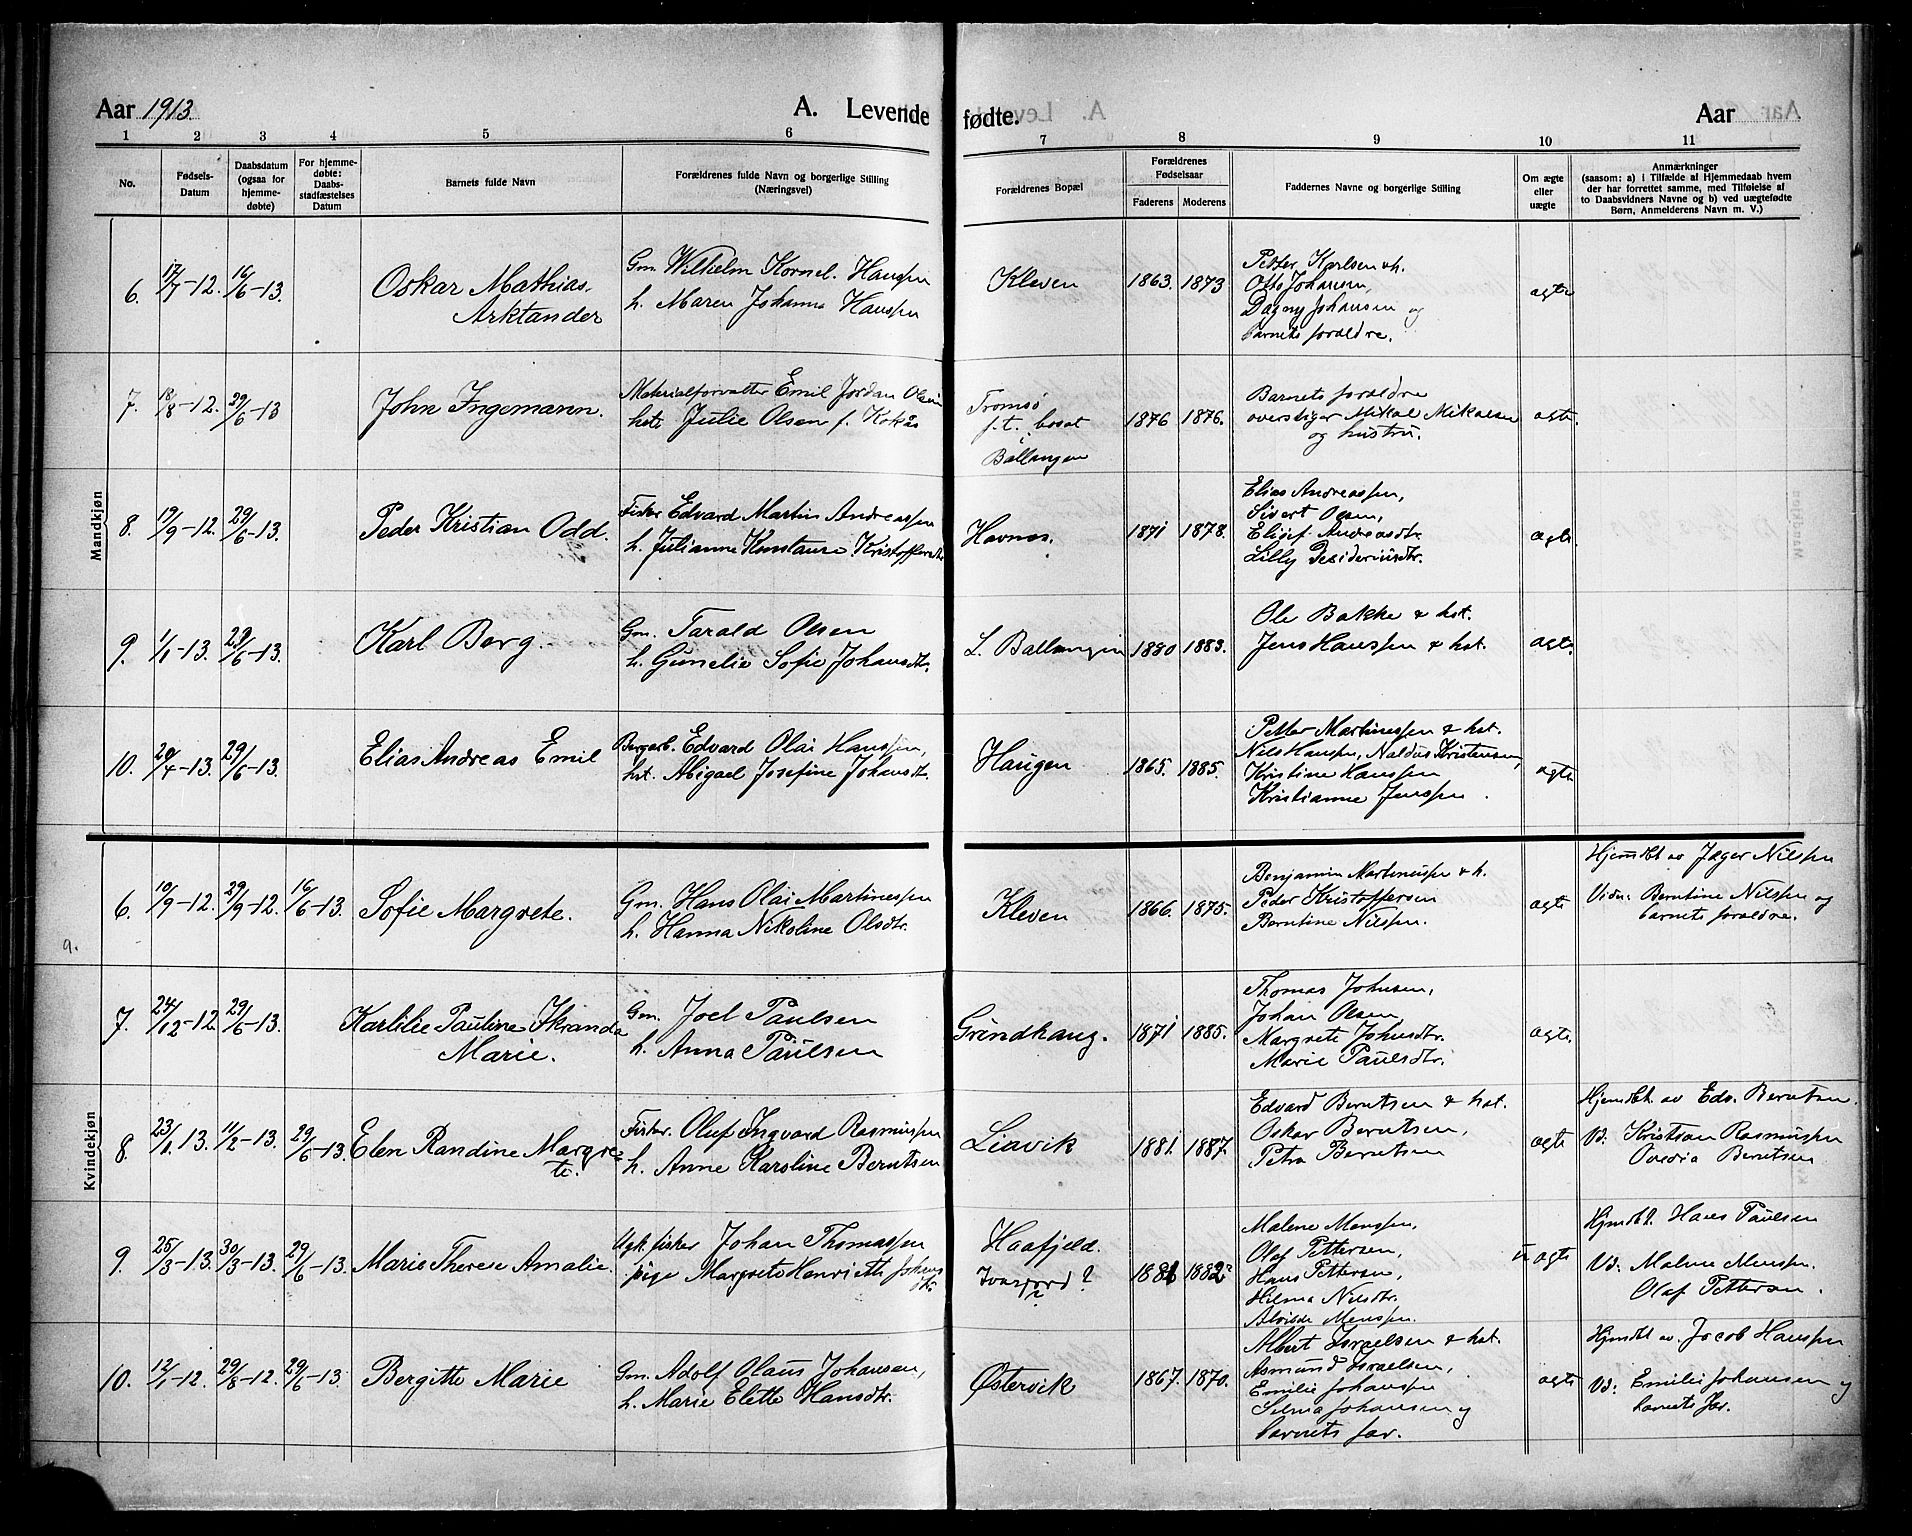 Aar 1913. A. Levende fødte. Aar
1 2 3 4 5 6 7 8 9 10 11
No.
Fødsels-
Datum
Daabsdatum
(ogsaa for
hjemme-
døbte)
For hjemme-
døbte:
Daabs-
stadfæstelses
Datum
Barnets fulde Navn
Forældrenes fulde Navn og borgerlige Stilling
(Næringsvei)
Forældrenes Bopæl
Forældrenes
Fødselsaar
Faderens Moderens
Faddernes Navne og borgerlige Stilling
Om ægte
eller
uægte
Anmærkninger
(saasom: a) i Tilfælde af Hjemmedaab hvem
der har forrettet samme, med Tilføielse af
to Daabsvidners Navne og b) ved uægtefødte
Børn, Anmelderens Navn m. V.)
Mandkjøn
6. 17/7-12. 16/6-13.
Oskar Mathias
Arktander
Gm. Wilhelm Kornel. Hanssen
h. Maren Johanna Hanssen
Kleven
1863. 1873
Petter Karlsen & h.
Otto Johansen,
Dagny Johansen og
barnets foraldre.
agte
7. 18/8-12. 29/6-13
John Ingemann.
Materialforvalter Emil Jordan Olsen
hst. Julie Olsen f. Kokås
Tromsø
f. t. bosat
i
Ballangen
1876 1876.
Barnets foraldre
overstiger Mikal Mikalsen
og hustru.
agte.
8. 19/9-12. 29/6-13.
Peder Kristian Odd.
Fisker Edvard Martin Andreassen
h. Julianne Konstanse Kristoffersdtr.
Havnes.
1871 1878.
Elias Andreassen,
Sivert Olsen,
Andreasdtr.
Lilly Desideriusdtr.
agte.
9. 1/1-13. 29/6-13.
Karl Borg.
Gm. Tarald Olsen
h. Gunelie Sofie Johansdtr.
L. Ballangen
1880 1883.
Ole Bakke & hst.
Jens Hanssen & hst.
agte.
10. 20/4-13. 29/6-13.
Elias Andreas Emil
Bergarb. Edvard Olai Hanssen,
hst. Abigael Josefine Johansdtr.
Haugen
1865. 1885.
Petter Martinessen & hst.
Nils Hanssen, Naldus Kristensen,
Kristine Hanssen
Kristianne Jenssen.
agte
Kvindekjøn
9.
6. 10/9-12. 29/9-12. 16/6-13.
Sofie Margrete.
Gm. Hans Olai Martinessen
h. Hanna Nikoline Olsdtr.
Kleven
1866. 1875.
Benjamin Martinussen & h.
Peder Kristoffersen
Berntine Nilsen.
agte
Hjemdbt av Jæger Nilssen
Vidn: Berntine Nilssen og
barnets foraldre.
7. 24/12-12. 29/6-13.
Karlilie Pauline Skranda
Marie.
Gm. Joel Paulsen
h. Anna Paulsen
Grindhaug.
1871 1885.
Thomas Johnsen,
Johan Olsen
Margrete Johnsdtr.
Marie Paulsdtr.
agte.
8. 23/1 13. 11/2-13. 29/6-13.
Elen Randine Margre-
te.
Fisker. Oluf Ingvard Rasmussen
h. Anne Karoline Berntsen
Liavik
1881. 1887.
Edvard Berntsen & hst.
Oskar Berntsen,
Petra Berntsen
agte
Hjemdbt. av Edv. Berntsen.
Vd: Kristian Rasmussen
Ovedia Berntsen
9. 25/3-13. 30/3-13. 29/6-13.
Marie Therese Amalie.
Ugk. fisker Johan Thomassen
pige Margrete Henriette Johans
dtr.
Haafjeld.
1881 1882?
Malene Menssen,
Olaf Pettersen,
Hans Pettersen,
Hilma Nilsdtr.
Menssen.
u agte
Hjmdbt. Hans Paulsen
Vd: Malene Menssen.
Olaf Pettersen.
10. 12/1-12. 29/8-12. 29/6-13.
Bergitte Marie
Gm. Adolf Olaus Johansen,
h. Marie Elette Hansdtr.
Østervik
1867. 1870.
Albert Israelsen & hst.
Asmund Israelsen,
Emilie Johanssen
Selma Johansen og
barnets far.
agte
Hjmdbt av. Jocob Hanssen
Vd: Emilie Johansen og
barnets far.